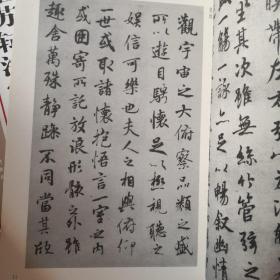 坐其次雖無絲竹管弦
一觴一詠亦足以暢敘幽情
觀宇宙之大俯察品類之盛
所以遊目騁懷足以極視聽之
娛信可樂也夫人之相與俯仰
一世或取諸懷抱悟言一室之內
或因寄所託放浪形骸之外雖
趣舍萬殊靜躁不同當其欣